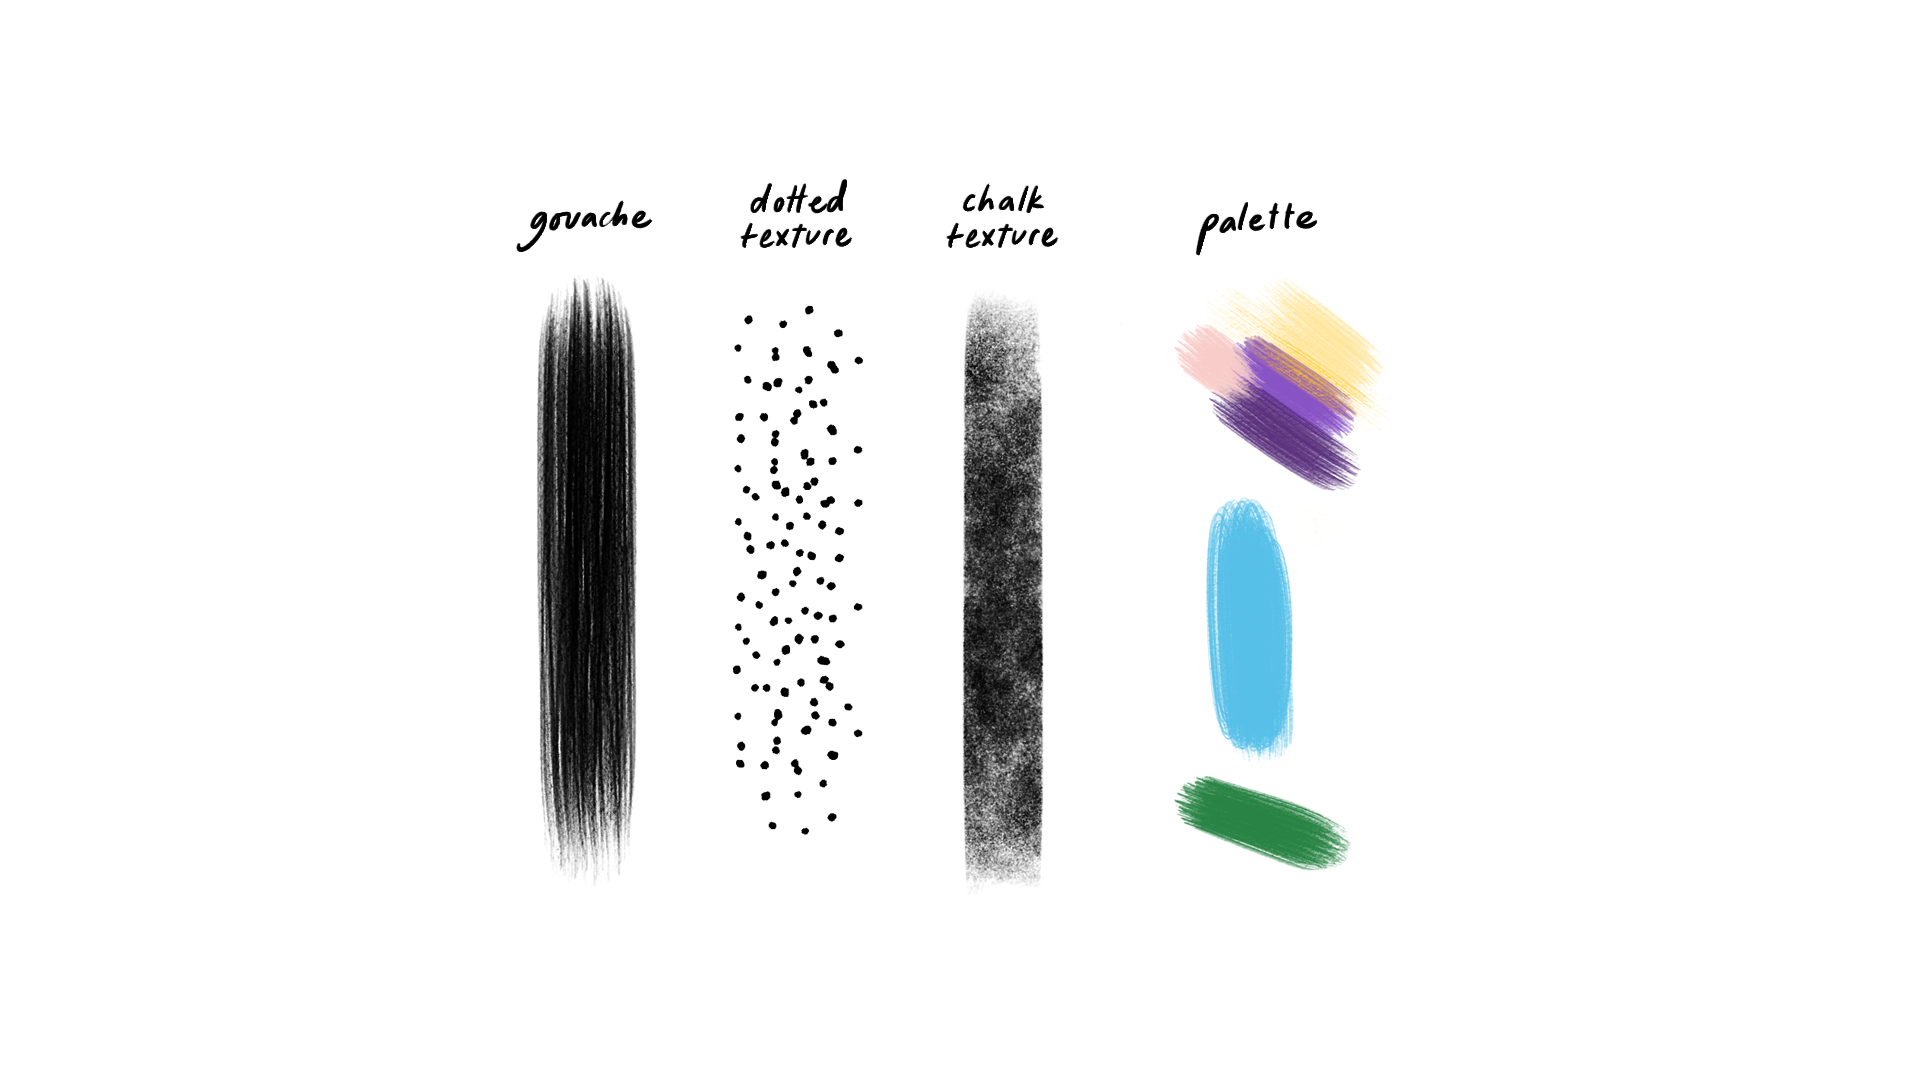 gouache
dotted
texture
chalk
texture
palette